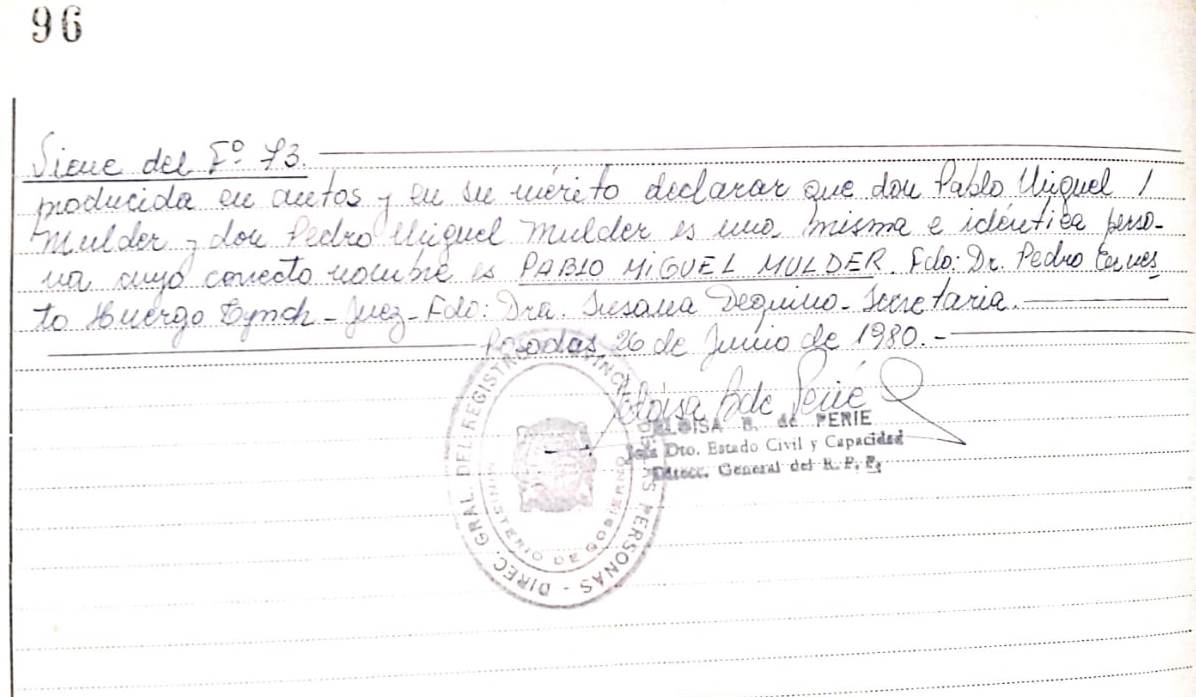 96
Viene del Fº 73.
producida en autos y en su mérito declarar que don Pablo Miguel /
Mulder y don Pedro Miguel Mulder es una misma e idéntica perso-
na cuyo correcto nombre es PABLO MIGUEL MULDER. Fdo: Dr. Pedro Ernes
to Huergo Lynch - Juez - Fdo: Dra. Susana Dequino - Secretaria.
Posadas, 26 de Junio de 1980. -
Eloisa B de Perié
ELOISA B. de PERIE
Jefa Dto. Estado Civil y Capacidad
Direcc. General del R. P. P.
DIREC. GRAL. DEL REGISTRO PERSONAS
MINISTERIO DE GOBIERNO